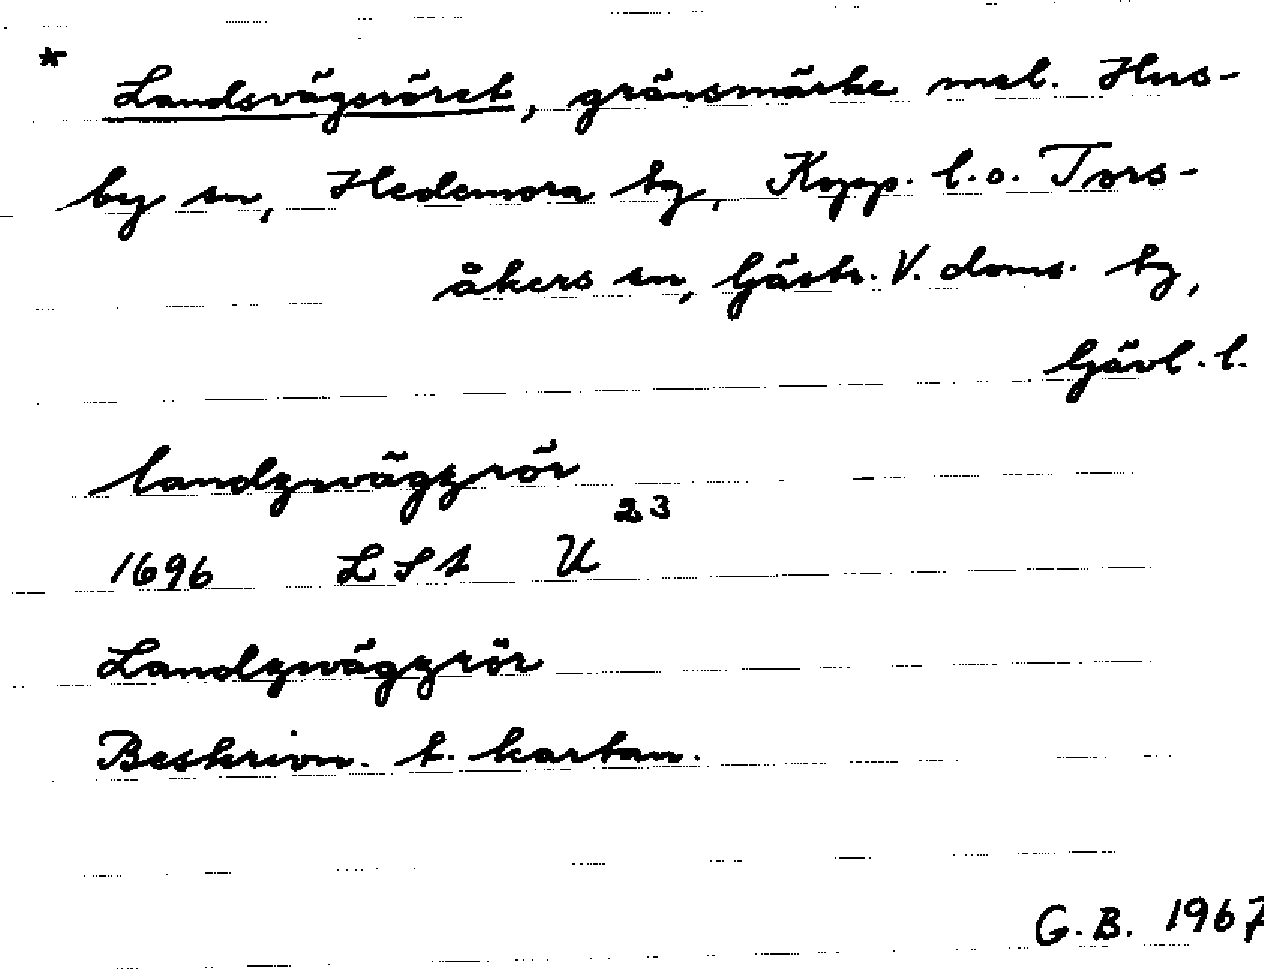 * Landsvägsröret, gränsmärke mel. Hus-
by sn, Hedemora tg, Kopp. l. o. Tors-
åkers sn, Gästr. V. doms. tg,
Gävl. l.
landzwägzrör
1696 LSA U 23
Landzwägzrör
Beskrivn. t. kartan.
G.B. 1967